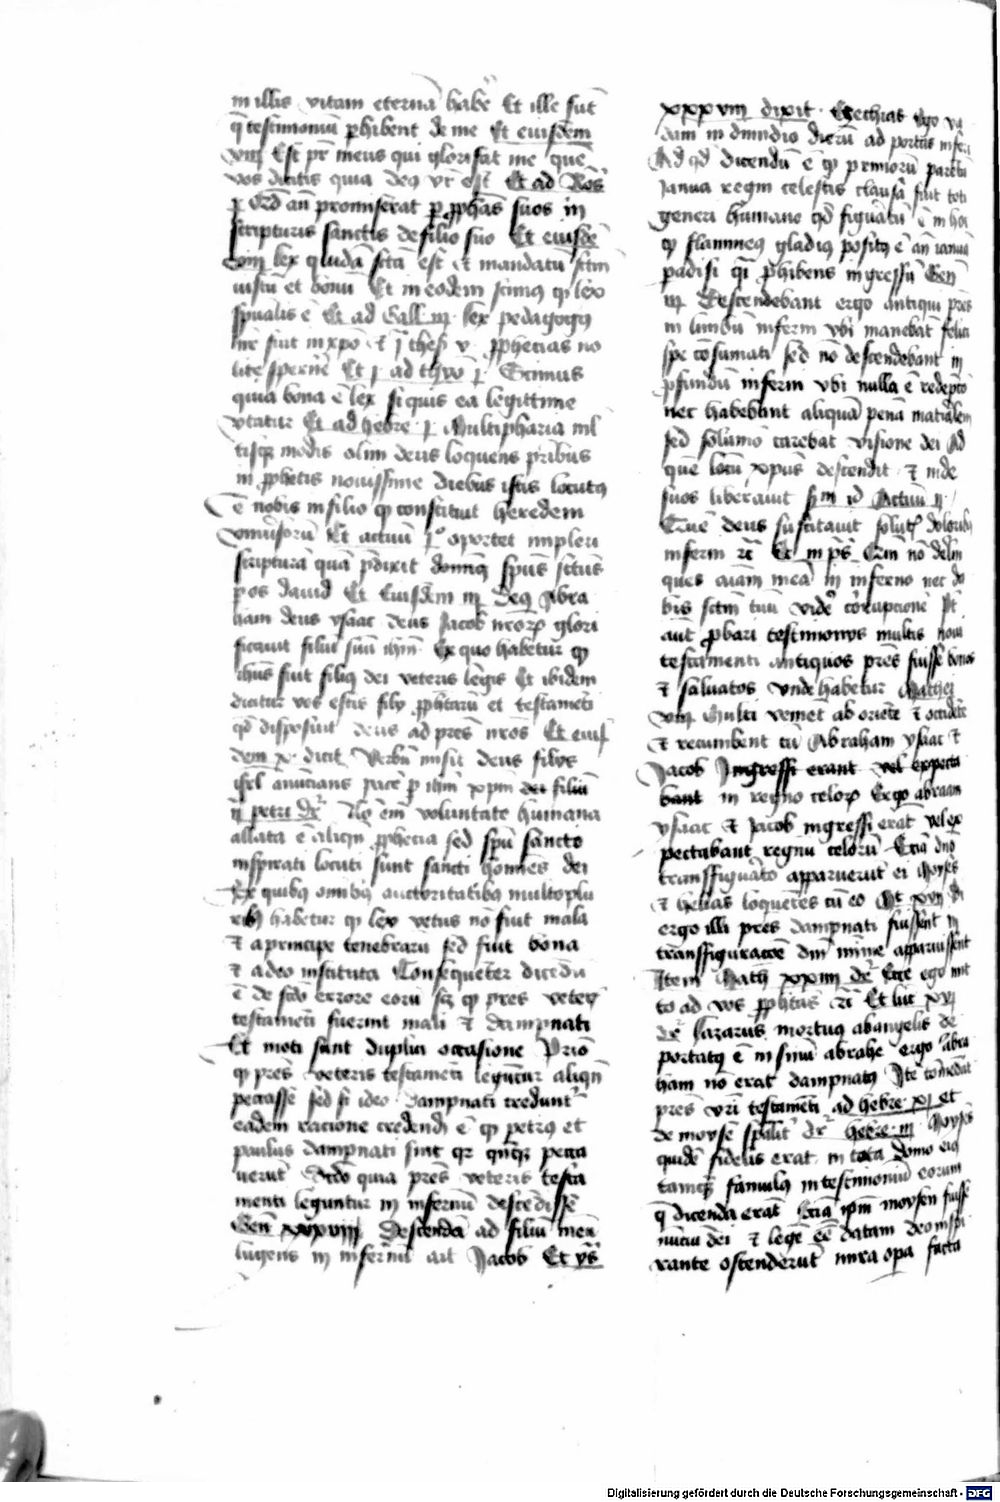 in illis vitam eternā habē Et ille sūt
q̄ testimoniū phibent de me Et eiusdem
viij Est pr̄ meus qui glorifīcat me quē
vos dicitis quia deꝰ vr̄ est Et ad Ro͞s
p̄ Qd̄ an̄ promiserat p̱ ꝓphās suos in
scripturis sanctis de filio suo Et eiusdē
lex quidā sctā est ⁊ mandatū sctm̄
iustū et bonū Et in eodem scimꝰ qꝫ lex
spūalis ē Et ad Gall iij lex pedagogꝰ
nr̄ fuit in xpō ⁊ j thes v ꝓphecias no
lite spernē Et j ad thīo j Scimus
quia bona ē lex si quis ea legittime
vtatur Et ad hebre j Multipharia ml
tisqꝫ modis olim deus loquens pribus
in ꝓphetis nouissime diebus istis locutꝰ
ē nobis in filio qꝫ constituit heredem
vniūsorū Et actuū j° oportet impleri
scripturā quā p̄dixit spūs sctūs
p os dauid Et Eiusdem iij Deꝰ Abra
ham deus ysaac deus Jacob nr̄oꝝ glori
ficauit filiū suū ihm̄ Ex quo habetur qꝫ
ihūs fuit filiꝰ dei veteris legis Et ibidem
dicitur vos estis filij ꝓphetarū et testamēti
qd̄ disposuit deus ad pres nr̄os Et eiuſ
dem x dicit Verbū misit deus filijs
isrl̄ anūcians pacē p̱ ihm̄ xpm̄ dei filiū
ij petri dr̄ No em̄ voluntate humana
allata ē aliqn̄ ꝓphecia sed spū sancto
inspirati locuti sunt sancti homēs dei
Ex quibꝰ omibꝰ auctoritatibꝰ multoplu
ribꝰ habetur qꝫ lex vetus no fuit mala
⁊ a principe tenebrarū sed fuit bona
⁊ a deo instituta Consequēter dicēdū
ē de scdo errore eorū scꝫ qꝫ pres veteꝝ
testamēti fuerint mali ⁊ dampnati
Et moti sunt duplici occasione Prīo
qꝫ pres veteris testamēti leguntur aliqn̄
peccasse sed si ideo dampnati credunt̄
eadem racione credendū ē qꝫ petrus et
paulus dampnati sint qꝫ qn̄qꝫ pecca
uerūt Scdo quia pres veteris testa
menti leguntur in infernū descēdisse
Gen̄ xxxviij Descendā ad filiū meū
lugens in infernū ait Jacob Et ys̄
xxxviij dixit Ezechias Ego va
dam in dimidio dierū ad portas inferi
Ad qd̄ dicendū ē qꝫ primorū parētū
Janua regni celestis clausa fuit toti
generi humano qd̄ figuratū ē in hoc
qꝫ flammeꝰ gladiꝰ positꝰ ē an̄ ianuā
padisi q̄ phibens ingressū Gen̄
iij Descendebant ergo antiqui pres
in limbū inferni vbi manebāt felici
spe cōsumati sed nō descendebant in
ꝓfundū inferni vbi nulla ē redēpcō
nec habebant aliquā penā materialem
sed solūmō carebāt visione dei Ad
quē locū xpūs descendit ⁊ inde
suos liberauit scdm id Actuū ij
Quē deus suscitauit solutꝭ doloribꝰ
inferni rc̄ Et in p̄s Qm̄ nō delin
ques aīam meā in inferno nec da
bis sctm̄ tuū videre corrupcionē Pt
aūt ꝓbari testimonijs multis noui
testamenti antiquos pres fuisse bonos
⁊ saluatos vnde habetur Mathei
viij Multi veniet ab oriente ⁊ occidēte
⁊ recumbent cū Abraham ysaac ⁊
Jacob Ingressi erant vel expecta
bant in regno celoꝝ Ergo abraam
ysaac ⁊ Jacob ingressi erāt vel ex
pectabant regnū celorū Etiā dno
transfigurato apparuerūt ei Moyses
⁊ helias loquētes cū eo Mt xvij Si
ergo illi pres dampnati fuissent in
transfiguracōe dni mīme apparuissent
Item Math xxiiij dr̄ Ecce ego mit
to ad vos ꝓphetas rc̄ Et luc xvj
dr̄ lazarus mortuꝰ ab angelis de
portatꝰ ē in sinū abrahe ergo abra
ham nō erat dampnatꝰ Itē cōmēdat
pres vr̄i testamēti ad hebre xj et
de moyse spālit̄ dr̄ hebre iij Moyses
quidē fidelis erat in tota domo eiꝰ
tamqꝫ famulꝰ in testimoniū eorum
q̄ dicenda erāt Etiā ipm̄ moysen fuisse
nūciū dei ⁊ legē ee datam deo inspi
rante ostenderūt mira opa facta
Digitalisierung gefördert durch die Deutsche Forschungsgemeinschaft - DFG